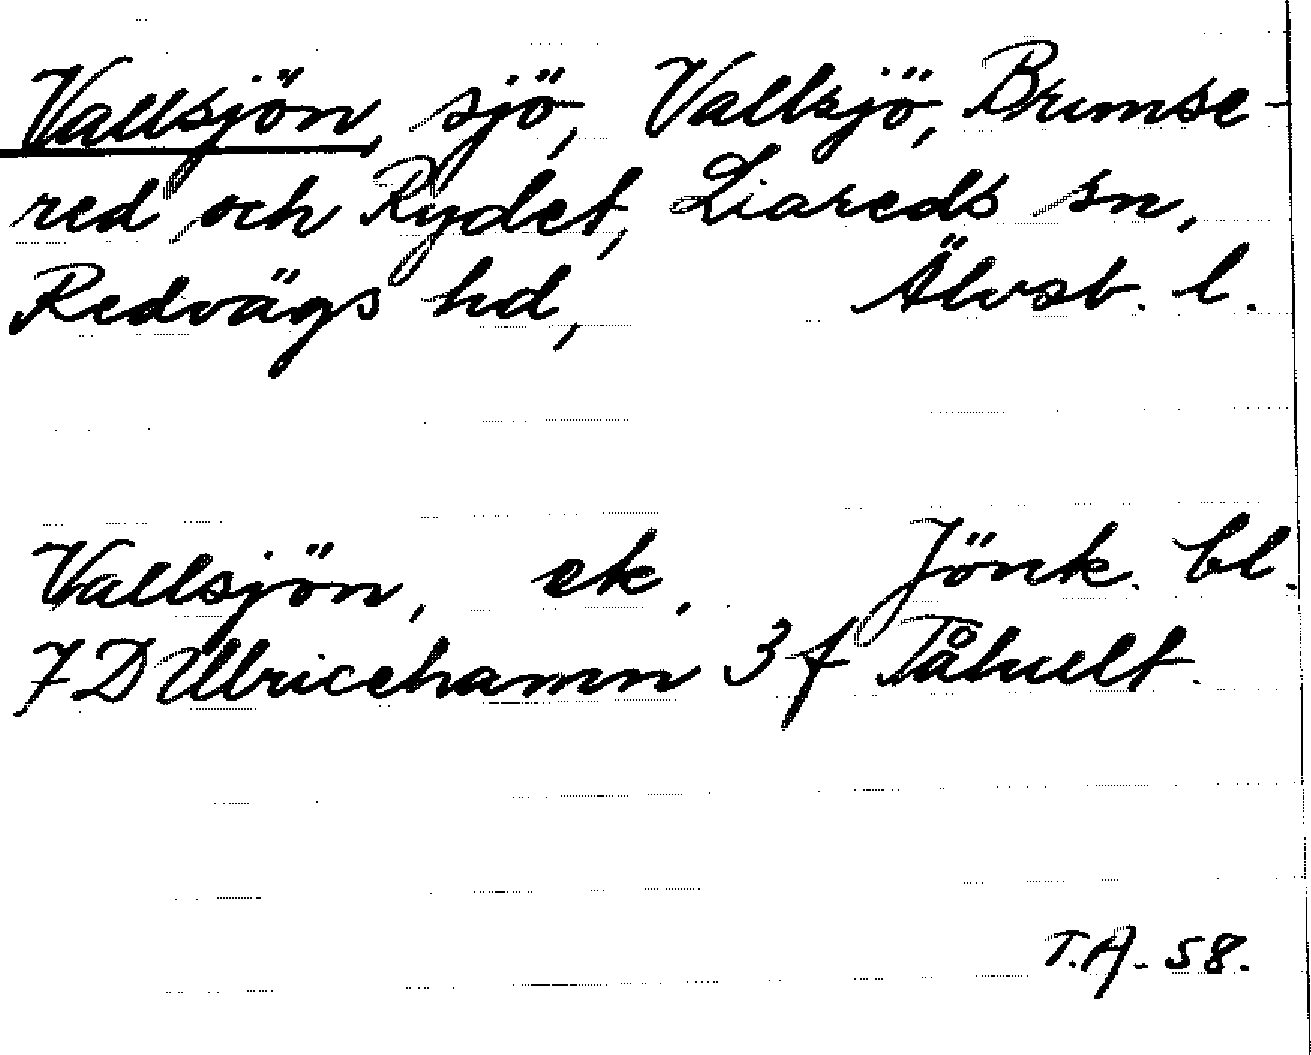 Vallsjön, sjö, Vallsjö, Brumse-
red och Rydet, Liareds sn,
Redvägs hd, Älvsb. l.
Vallsjön, ek. Jönk. bl.
7 D Ulricehamn 3 f Tåhult.
T.A. 58.